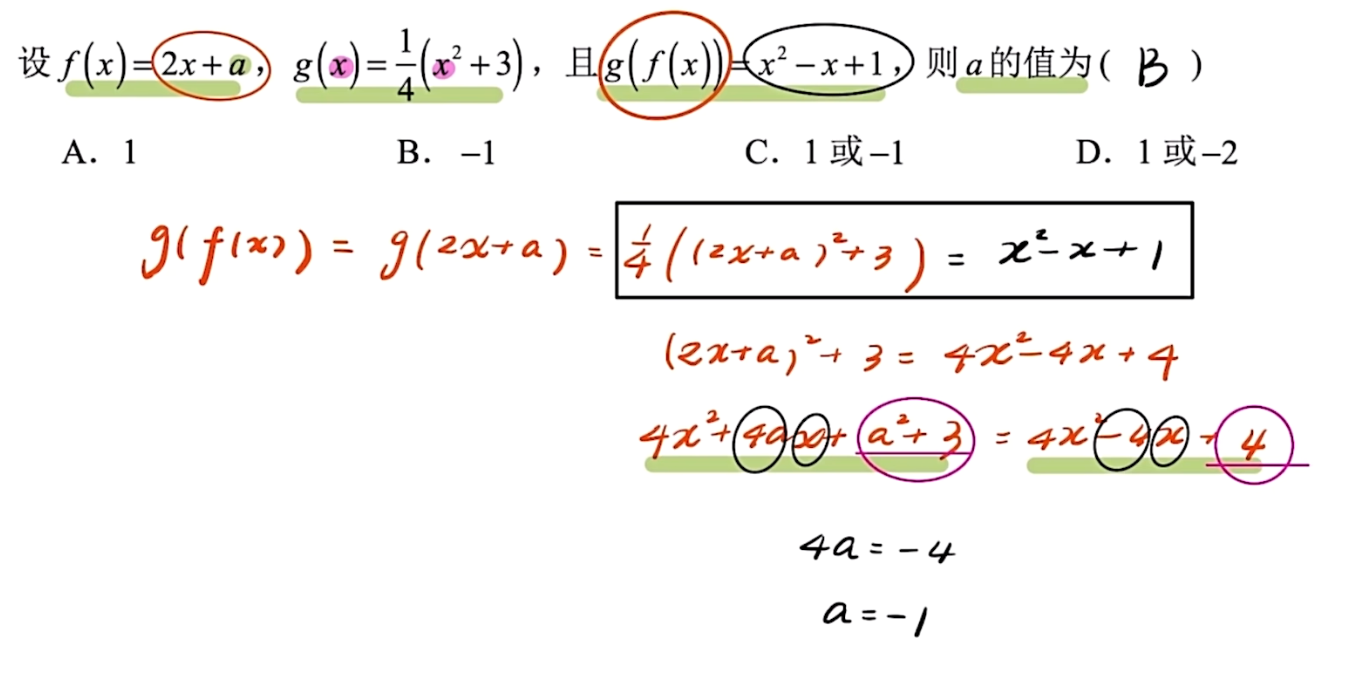 设 f(x)=2x+a，g(x)=1/4(x²+3)，且g(f(x))=x²−x+1，则a的值为( B )
A. 1 B. −1 C. 1或−1 D. 1或−2
g(f(x)) = g(2x+a) = 1/4((2x+a)²+3) = x²−x+1
(2x+a)²+3 = 4x²−4x+4
4x²+4ax+a²+3 = 4x²−4x+4
4a=−4
a=−1